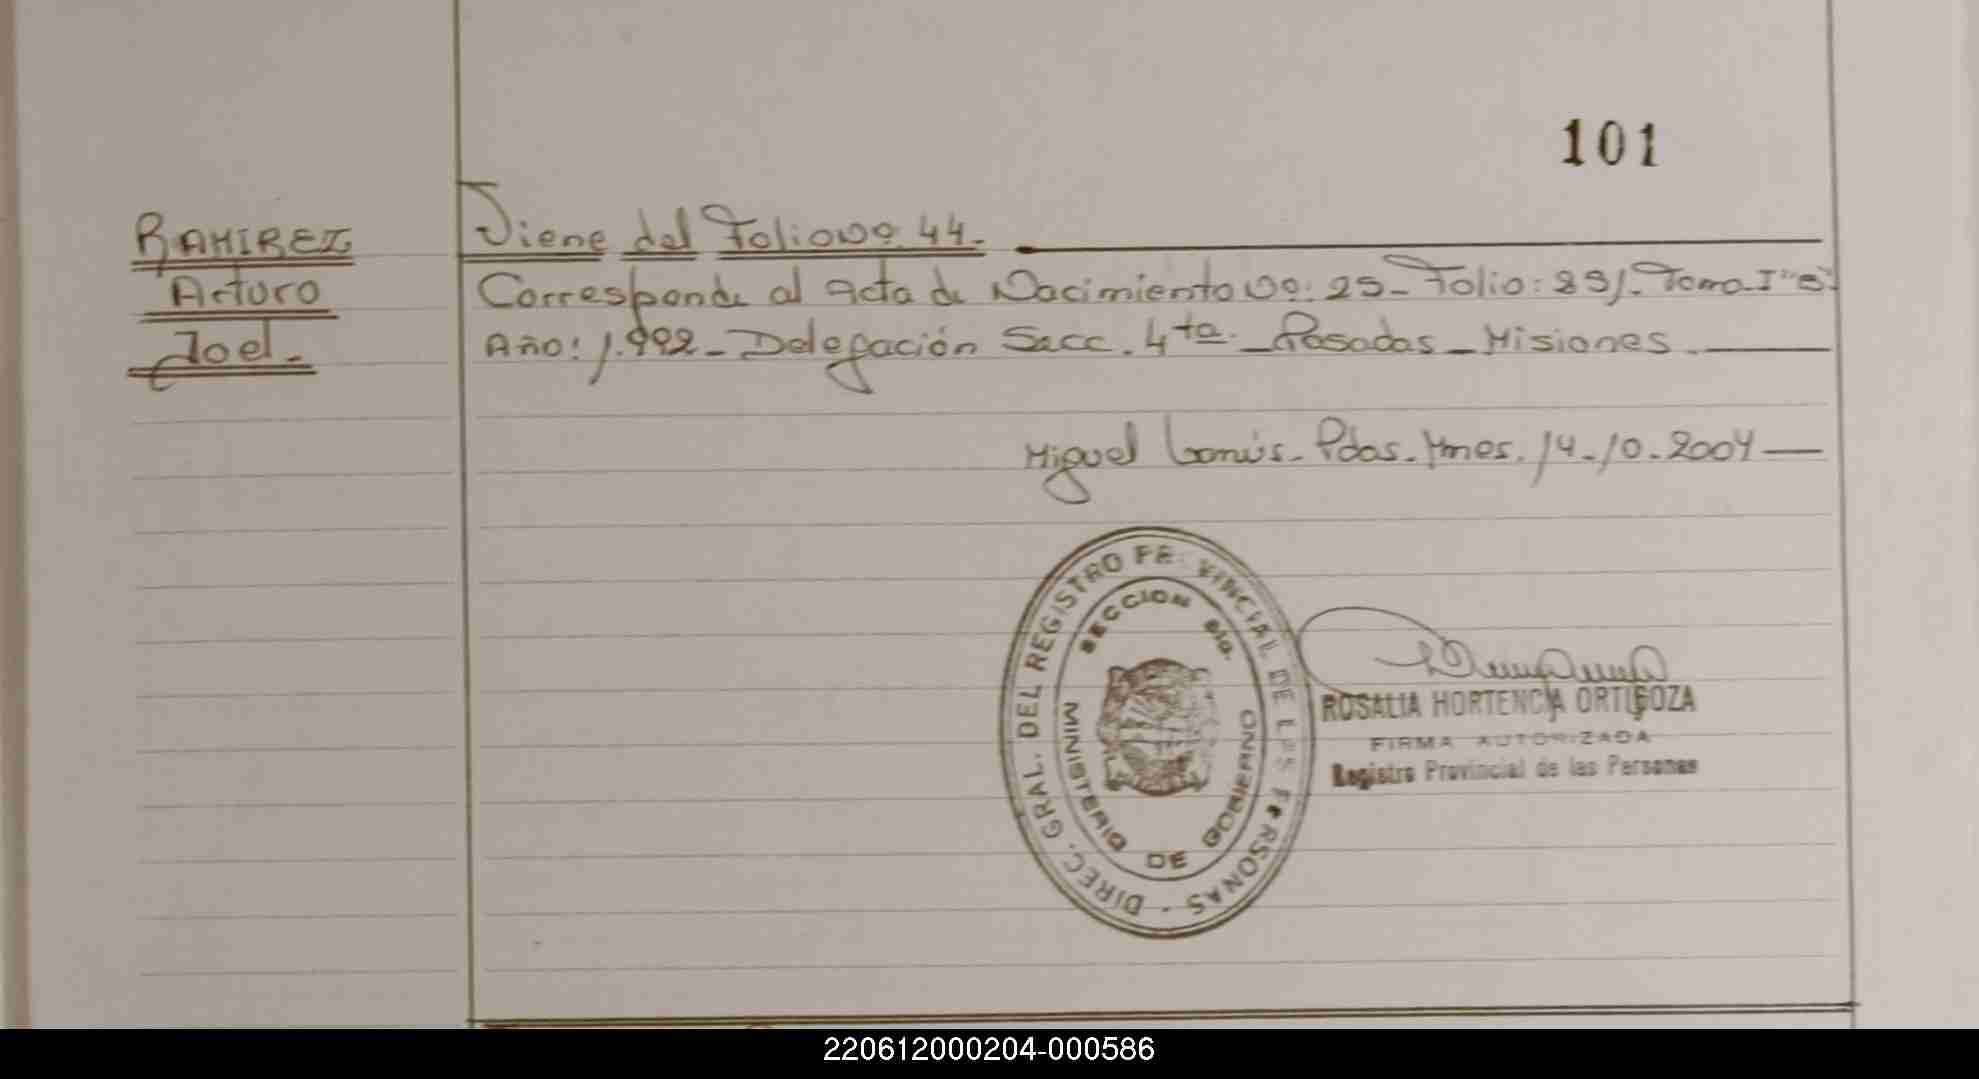 101
RAMIREZ
Arturo
Joel.
Viene del Folio Nº 44.
Corresponde al Acta de Nacimiento Nº: 25 - Folio: 23/. Tomo I "B"
Año: 1.992 - Delegación Secc. 4ta. - Posadas - Misiones.
Miguel Pdas. Mnes. 14-10-2004
DIREC. GRAL. DEL REGISTRO PROVINCIAL DE LAS PERSONAS -
SECCION
MINISTERIO DE GOBIERNO
ROSALIA HORTENCIA ORTIGOZA
FIRMA AUTORIZADA
Registro Provincial de las Personas
220612000204-000586